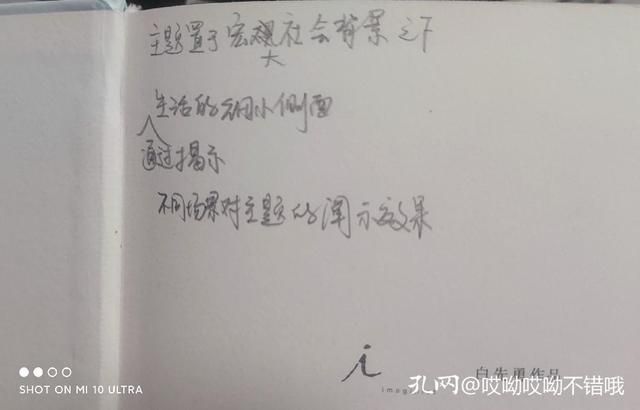 主题置于宏观社会背景之下
大
生活的细小侧面
通过揭示
不同场景对主题的演示效果
imag
白先勇作品
SHOT ON MI 10 ULTRA
孔网@哎呦哎呦不错哦